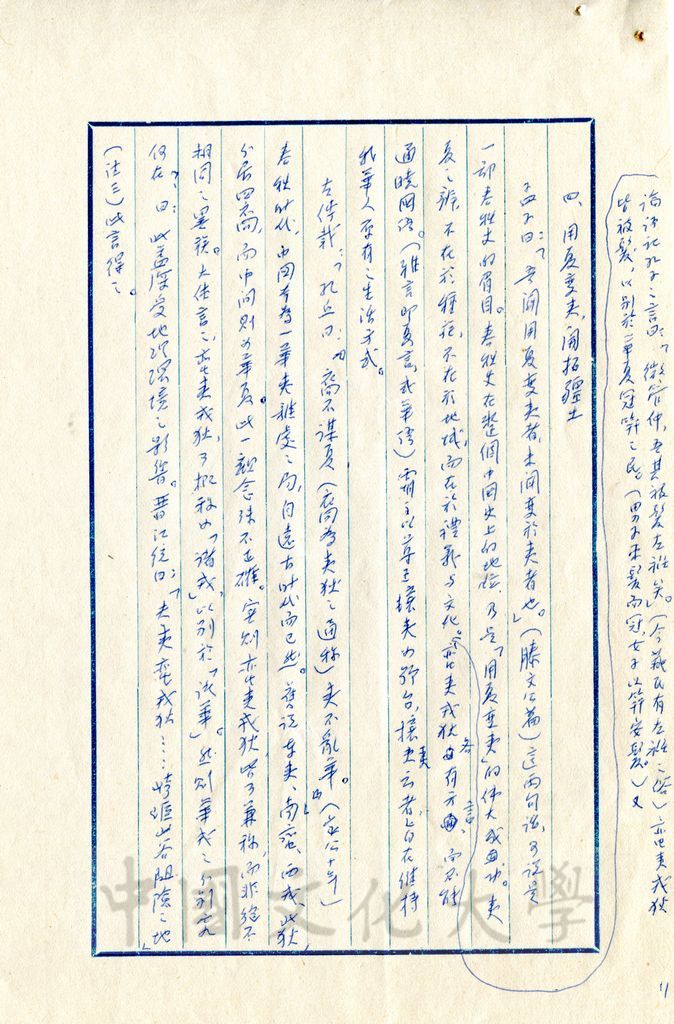 論語記孔子之言曰：「微管仲，吾其被髮左衽矣。」（今藏民有左衽之俗）蠻夷戎狄
皆被髮，以別於華夏冠笄之民。（男子束髮而冠，女子以笄安髮。）又
四、用夏變夷，開拓疆土
孟子曰：「吾聞用夏變夷者，未聞變於夷者也。」（滕文公篇）這兩句話，可說是
一部春秋史的眉目。春秋史在整個中國史上的地位，乃是「用夏變夷」的偉大成功。夷
夏之辨，不在於種族，不在於地域，而在於禮義與文化。蠻夷戎狄各有方言，而不能
通曉國語。（雅言即夏言，或華語）霸主以尊王攘夷為號召，攘夷云者，旨在維持
我華人原有之生活方式。
左傳載：「孔丘曰：『裔不謀夏（裔為夷狄之通稱）夷不亂華。』（定公十年）
春秋時代，中國本為一華夷雜處之局，自遠古時代而已然。舊說東夷、南蠻、西戎、北狄，
分居四裔，而中間則為華夏。此一觀念殊不正確。實則蠻夷戎狄，皆可兼稱，而非絕不
相同之異族。左傳言之，蠻夷戎狄，可概稱為「諸戎」，以別於「諸華」。然則華戎之分別究
何在？曰：此蓋深受地理環境之影響。晉江統曰：「夫夷蠻戎狄……崎嶇山谷阻險之地」
（註三）此言得之。
11
中國文化大學